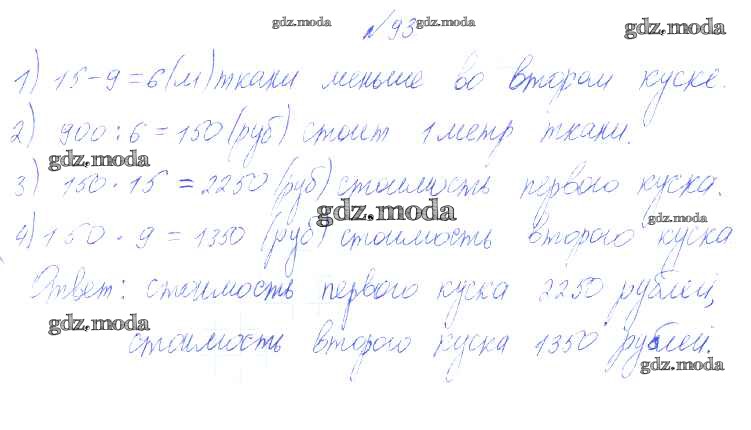 gdz.moda №93 gdz.moda gdz.moda
1) 15-9=6(м) ткани меньше во втором куске.
2) 900:6=150(руб) стоит 1 метр ткани.
gdz.moda
3) 150·15=2250(руб) стоимость первого куска.
gdz.moda gdz.moda
4) 150·9=1350 (руб) стоимость второго куска
Ответ: стоимость первого куска 2250 рублей,
gdz.moda
стоимость второго куска 1350 рублей.
gdz.moda